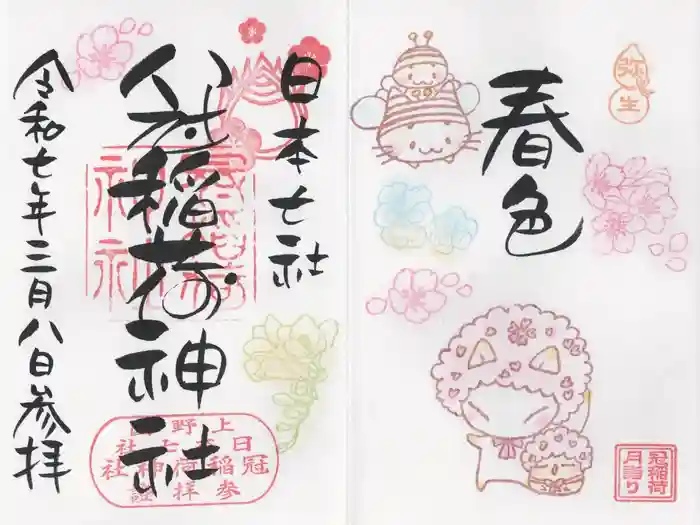 弥生
春色
冠稲荷
月詣り
日本七社
冠稲荷神社
上野国
日本七社
冠稲荷神社
参拝証
令和七年三月八日参拝